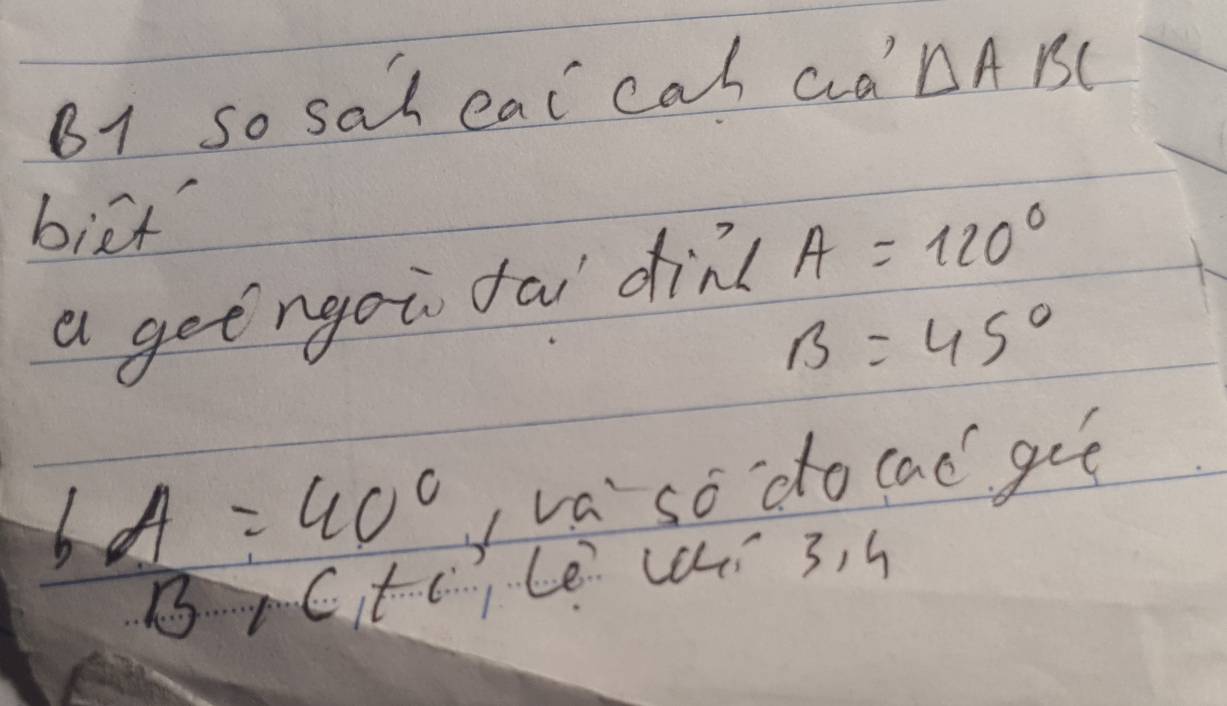 B1 so sáh caí cạh củả ΔABC
biết
a goé ngoài tại đỉnh A = 120°
B = 45°
b A = 40°, và số đo caé góc
B, C, tỉ lệ với 3,4